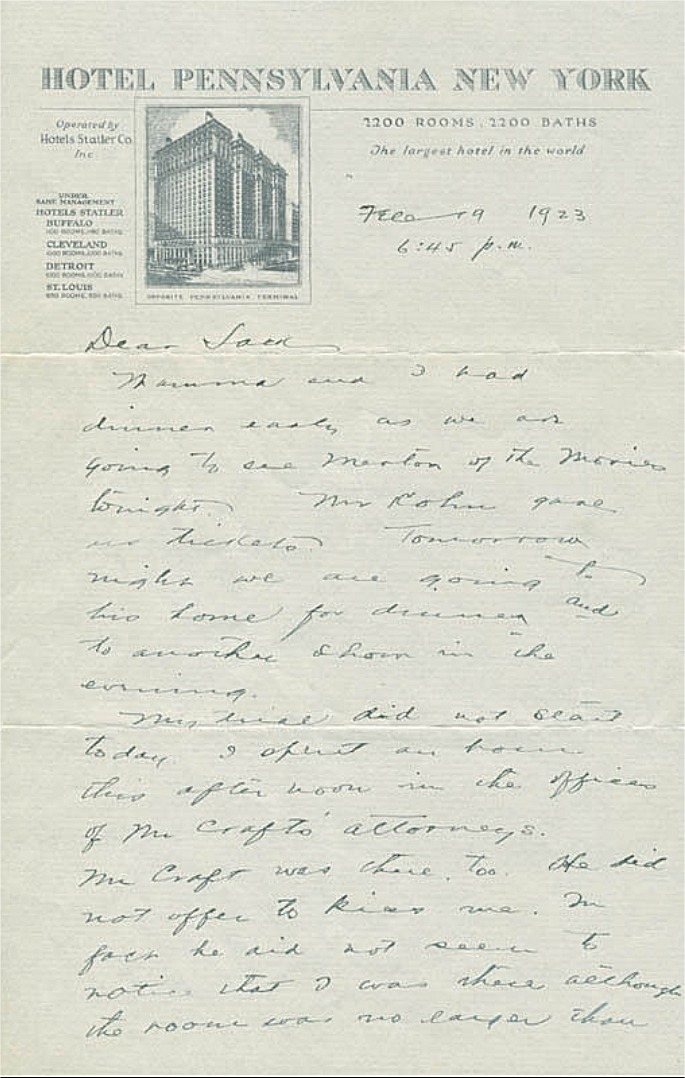 HOTEL PENNSYLVANIA NEW YORK
Operated by
Hotels Statler Co.
Inc
2200 ROOMS, 2200 BATHS
The largest hotel in the world
UNDER
SAME MANAGEMENT
HOTELS STATLER
BUFFALO
CLEVELAND
DETROIT
ST. LOUIS
OPPOSITE PENNSYLVANIA TERMINAL
Feb 19 1923
6:45 p.m.
Dear Jack
Mamma and I had
dinner early as we are
going to see Merton of the Movies
tonight. Mr Kohn gave
us tickets. Tomorrow
night we are going to
his home for dinner and
to another show in the
evening.
My trial did not start
today. I spent an hour
this afternoon in the offices
of Mr Crafts' attorneys.
Mr Craft was there, too. He did
not offer to kiss me. In
fact he did not seem to
notice that I was there although
the room was no larger than